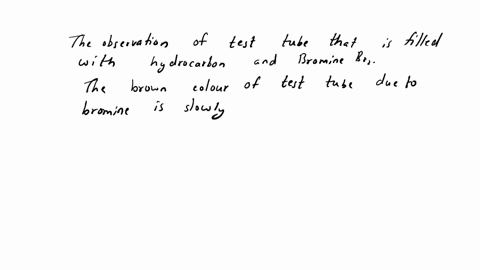 The observation of test tube that is filled
with hydrocarbon and Bromine Br₂.
The brown colour of test tube due to
bromine is slowly